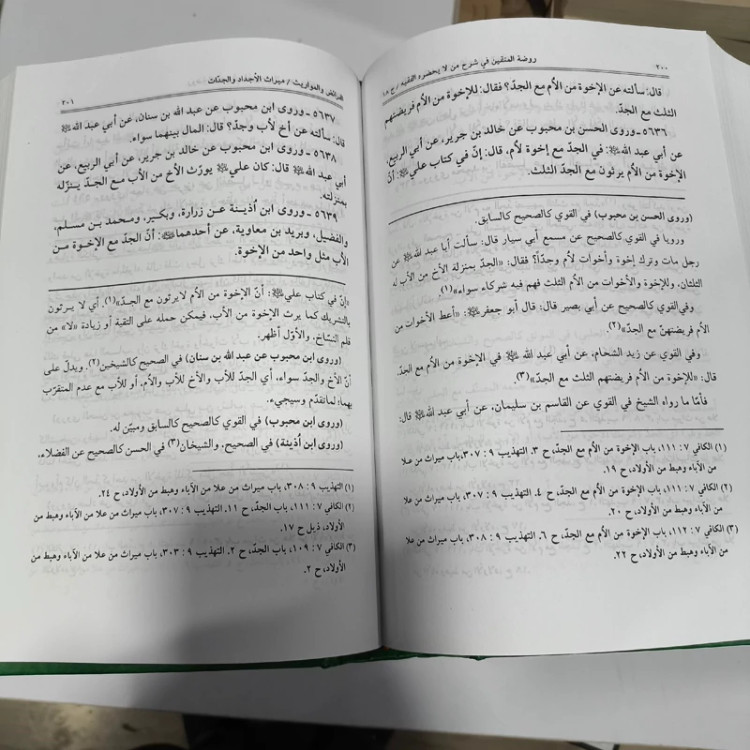 ٢٠٠ روضة المتقين في شرح من لا يحضره الفقيه / ج ١٨
قال: سألته عن الإخوة من الأم مع الجدّ؟ فقال: للإخوة من الأم فريضتهم
الثلث مع الجدّ.
٥٦٣٦ ـ وروى الحسن بن محبوب عن خالد بن جرير، عن أبي الربيع،
عن أبي عبد الله ﷺ: في الجدّ مع إخوة لأم، قال: إنّ في كتاب علي ﷺ: أنّ
الإخوة من الأم يرثون مع الجدّ الثلث.
(وروى الحسن بن محبوب) في القوي كالصحيح كالسابق.
ورويا في القوي كالصحيح عن مسمع أبي سيار قال: سألت أبا عبد الله ﷺ عن
رجل مات وترك إخوة وأخوات لأم وجدّاً؟ فقال: «الجدّ بمنزلة الأخ من الأب له
الثلثان، وللإخوة والأخوات من الأم الثلث فهم فيه شركاء سواء»(١).
وفي القوي كالصحيح عن أبي بصير قال: قال أبو جعفر ﷺ: «أعط الأخوات من
الأم فريضتهنّ مع الجدّ»(٢).
وفي القوي عن زيد الشحام، عن أبي عبد الله ﷺ في الإخوة من الأم مع الجدّ.
قال: «للإخوة من الأم فريضتهم الثلث مع الجدّ»(٣).
فأمّا ما رواه الشيخ في القوي عن القاسم بن سليمان، عن أبي عبد الله ﷺ قال:
(١) الكافي ٧: ١١١، باب الإخوة من الأم مع الجدّ، ح ٣. التهذيب ٩: ٣٠٧، باب ميراث من علا
من الآباء وهبط من الأولاد، ح ١٩.
(٢) الكافي ٧: ١١١، باب الإخوة من الأم مع الجدّ، ح ٤. التهذيب ٩: ٣٠٧، باب ميراث من علا
من الآباء وهبط من الأولاد، ح ٢٠.
(٣) الكافي ٧: ١١٢، باب الإخوة من الأم مع الجدّ، ح ٦. التهذيب ٩: ٣٠٨، باب ميراث من علا
من الآباء وهبط من الأولاد، ح ٢٢.
والمواريث / ميراث الأجداد والجدّات ٢٠١
٥٦٣٧ ـ وروى ابن محبوب عن عبد الله بن سنان، عن أبي عبد الله ﷺ
قال: سألته عن أخ لأب وجدّ؟ قال: المال بينهما سواء.
٥٦٣٨ ـ وروى ابن محبوب عن خالد بن جرير، عن أبي الربيع، عن
أبي عبد الله ﷺ قال: كان علي ﷺ يورّث الأخ من الأب مع الجدّ ينزّله
بمنزلته.
٥٦٣٩ ـ وروى ابن أُذينة عن زرارة، وبكير، ومحمد بن مسلم،
والفضيل، وبريد بن معاوية، عن أحدهما ﷺ: أنّ الجدّ مع الإخوة من
الأب مثل واحد من الإخوة.
«إنّ في كتاب علي ﷺ: أنّ الإخوة من الأم لايرثون مع الجدّ»(١). أي لا يرثون
بالتشريك كما يرث الإخوة من الأب، فيمكن حمله على التقية أو زيادة «لا» من
قلم النسّاخ، والأوّل أظهر.
(وروى ابن محبوب عن عبد الله بن سنان) في الصحيح كالشيخين(٢). ويدلّ على
أنّ الأخ والجدّ سواء، أي الجدّ للأب والأخ للأب والأم، أو للأب مع عدم المتقرّب
بهما؛ لماتقدّم وسيجيء.
(وروى ابن محبوب) في القوي كالصحيح كالسابق ومبيّن له.
(وروى ابن أُذينة) في الصحيح، والشيخان(٣) في الحسن كالصحيح عن الفضلاء،
(١) التهذيب ٩: ٣٠٨، باب ميراث من علا من الآباء وهبط من الأولاد، ح ٢٤.
(٢) الكافي ٧: ١١١، باب الجدّ، ح ١١. التهذيب ٩: ٣٠٧، باب ميراث من علا من الآباء وهبط من
الأولاد، ذيل ح ١٧.
(٣) الكافي ٧: ١٠٩، باب الجدّ، ح ٢. التهذيب ٩: ٣٠٣، باب ميراث من علا من الآباء وهبط من
الأولاد، ح ٢.